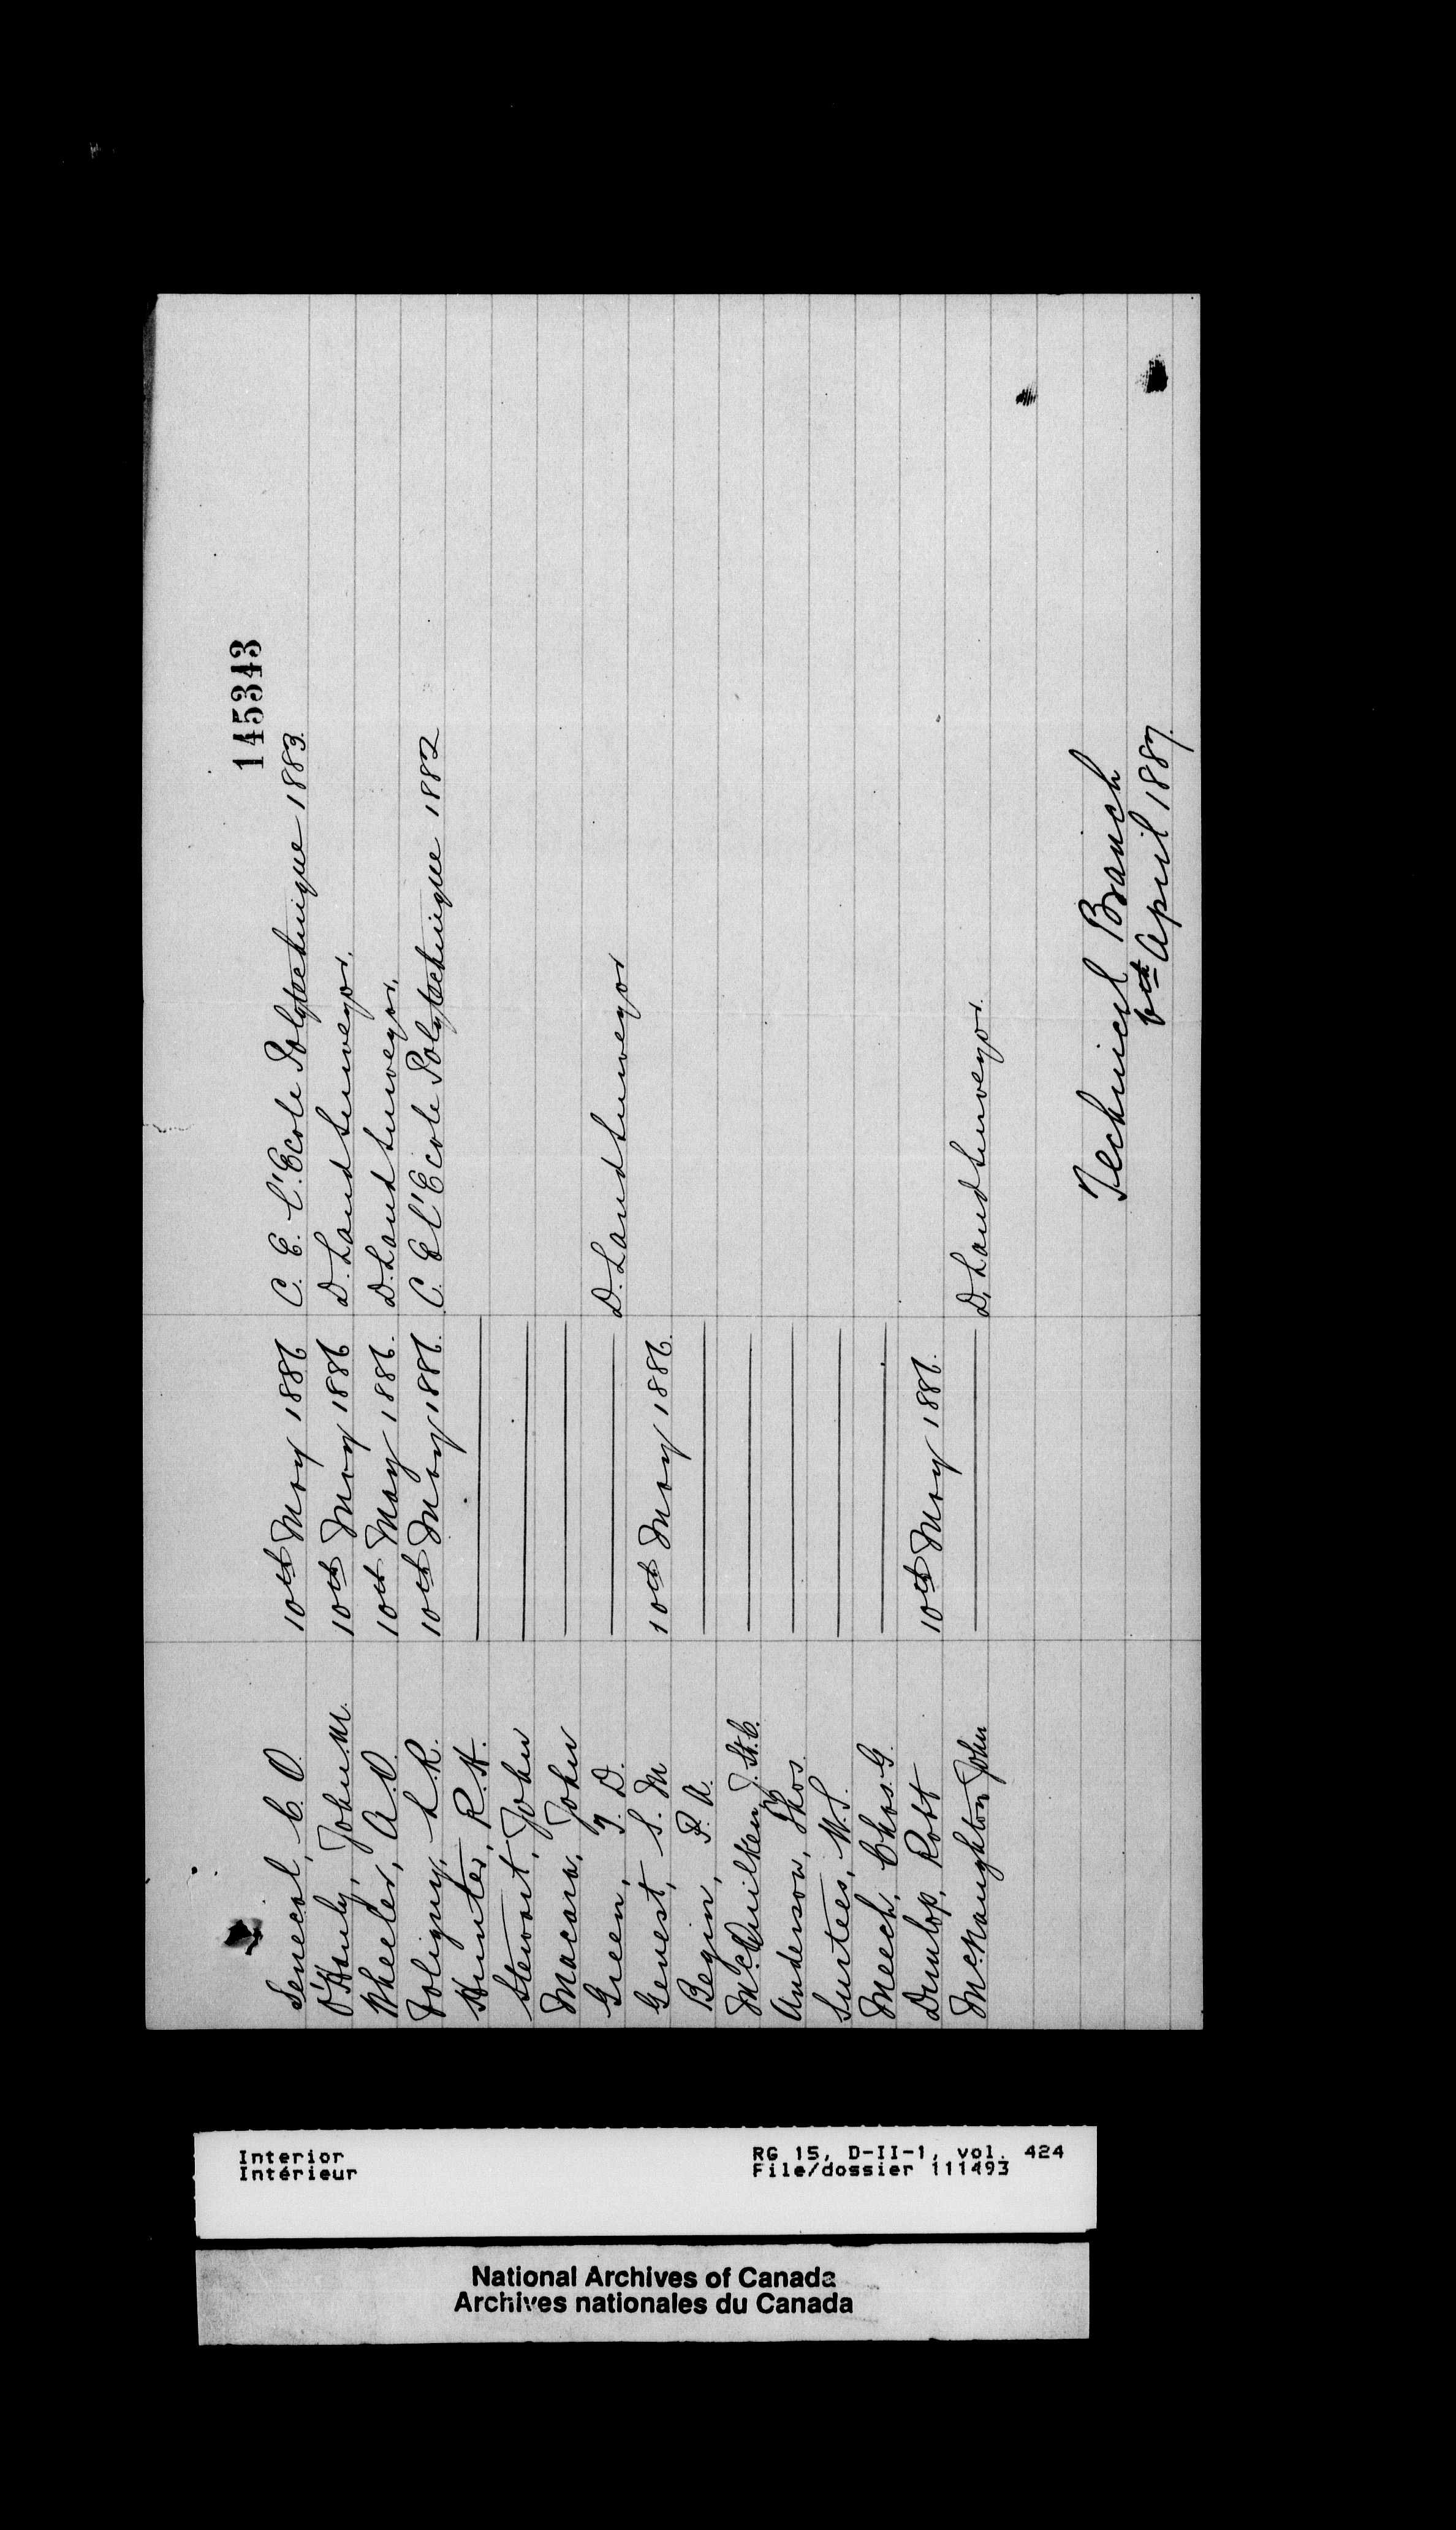 145343
Senecal, C. O. 10th May 1886 C. E. l'Ecole Polytechnique 1883.
O'Hanly, John. M. 10th May 1886 D. Land Surveyor.
Wheeler, A. O. 10th May 1886. D. Land Surveyor.
Voligny, L. R. 10th May 1886. C. E l'Ecole Polytechnique 1882
Hunter, R. H.
Stewart, John
Macara, John
Green, T. D. D. Land Surveyor
Genest, S. M 10th May 1886.
Begin, P. A.
McQuilken, J. St. C.
Anderson, Thos.
Surtees, W. S.
Meech, Chas. G.
Dunlop, Robt 10th May 1886.
McNaughton John D. Land Surveyor.
Technical Branch
6th April 1887.
Interior RG 15, D-II-1, vol. 424
Intérieur File/dossier 111493
National Archives of Canada
Archives nationales du Canada